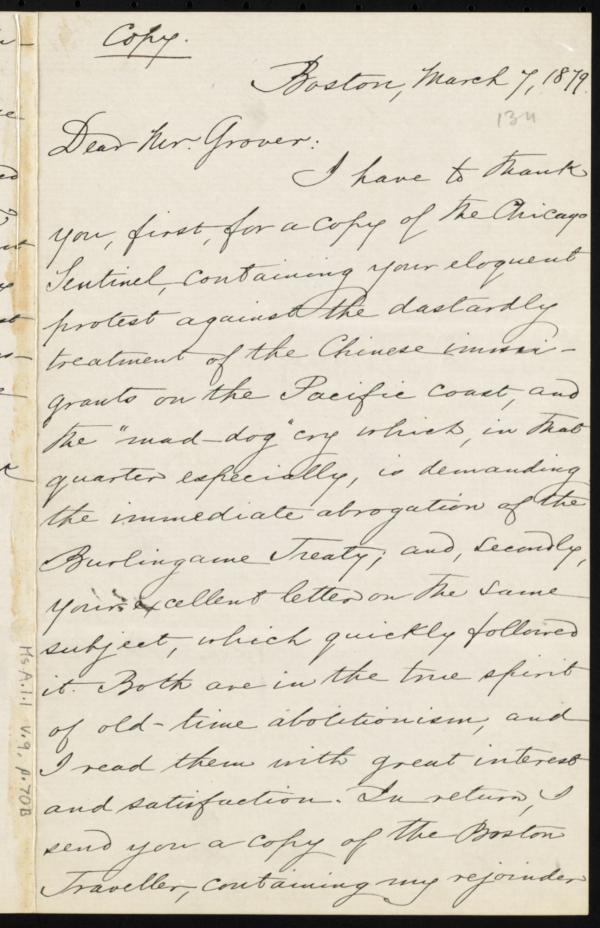 Copy.
Boston, March 7, 1879.
134
Dear Mr. Grover:
I have to thank
you, first, for a copy of the Chicago
Sentinel, containing your eloquent
protest against the dastardly
treatment of the Chinese immi-
grants on the Pacific coast, and
the "mad-dog" cry which, in that
quarter especially, is demanding
the immediate abrogation of the
Burlingame Treaty; and, secondly,
your excellent letter on the same
subject, which quickly followed
it. Both are in the true spirit
of old-time abolitionism, and
I read them with great interest
and satisfaction. In return, I
send you a copy of the Boston
Traveller, containing my rejoinder
Ms.A.1.1 v.9, p.70B